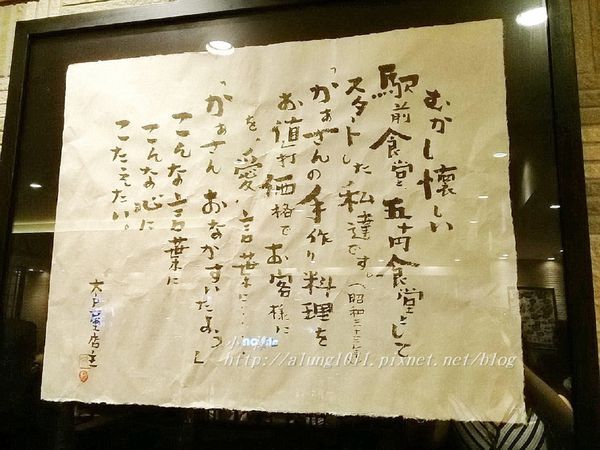 むかし懐しい
駅前食堂 五十円食堂として
スタートした私達です。(昭和三十三年)
「かあさんの手作り料理を
お値打価格でお客様に」
を、愛言葉に・・・・
「かぁさん おなかすいたよう」
こんな言葉に
こんな心に
こたえたい。
大戸屋店主
http://alung1011.pixnet.net/blog